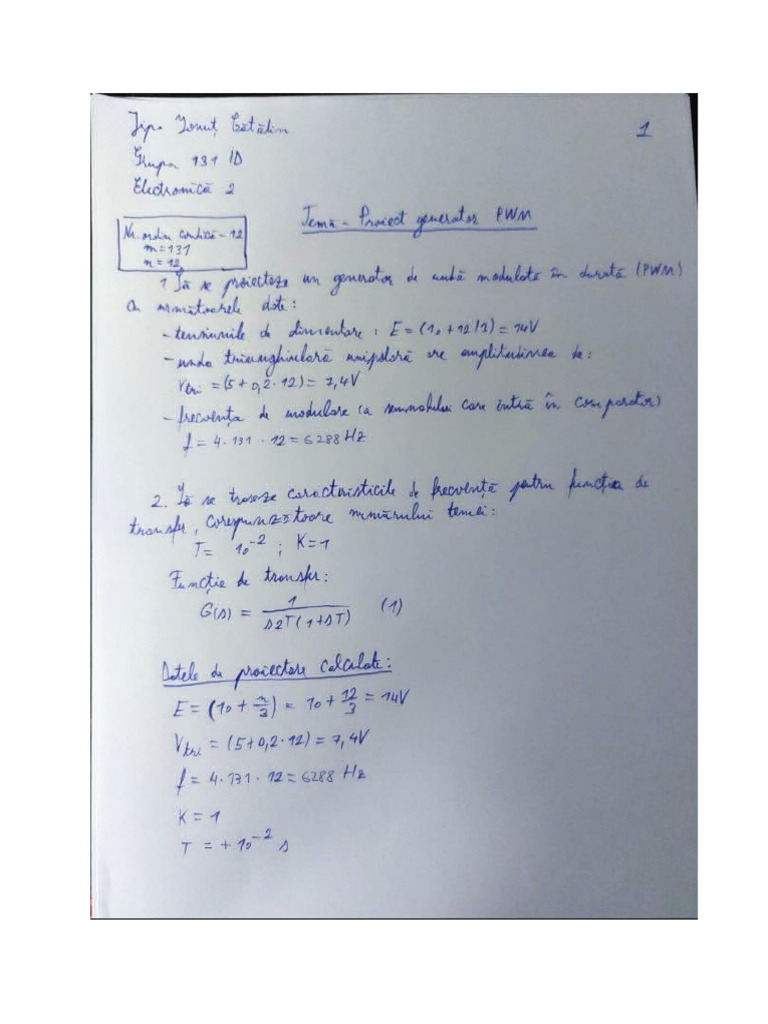 Jipa Ionuț Cătălin
1
Grupa 131 ID
Electronică 2
Temă - Proiect generator PWM
Nr. ordin condică - 12
m = 131
n = 12
1 Să se proiecteze un generator de undă modulată în durată (PWM)
cu următoarele date:
- tensiunile de alimentare : E = (10 + 12/3) = 14V
- unda triunghiulară unipolară are amplitudinea de:
Vtri = (5 + 0,2 · 12) = 7,4V
- frecvența de modulare (a semnalului care intră în comparator)
f = 4 · 131 · 12 = 6288 Hz
2. Să se traseze caracteristicile de frecvență pentru funcția de
transfer, corespunzătoare numărului temei:
T = 10⁻² ; K = 1
Funcție de transfer:
G(s) = 1 / s2T(1+sT) (1)
Datele de proiectare calculate:
E = (10 + n/3) = 10 + 12/3 = 14V
Vtri = (5 + 0,2 · 12) = 7,4V
f = 4 · 131 · 12 = 6288 Hz
K = 1
T = + 10⁻² s